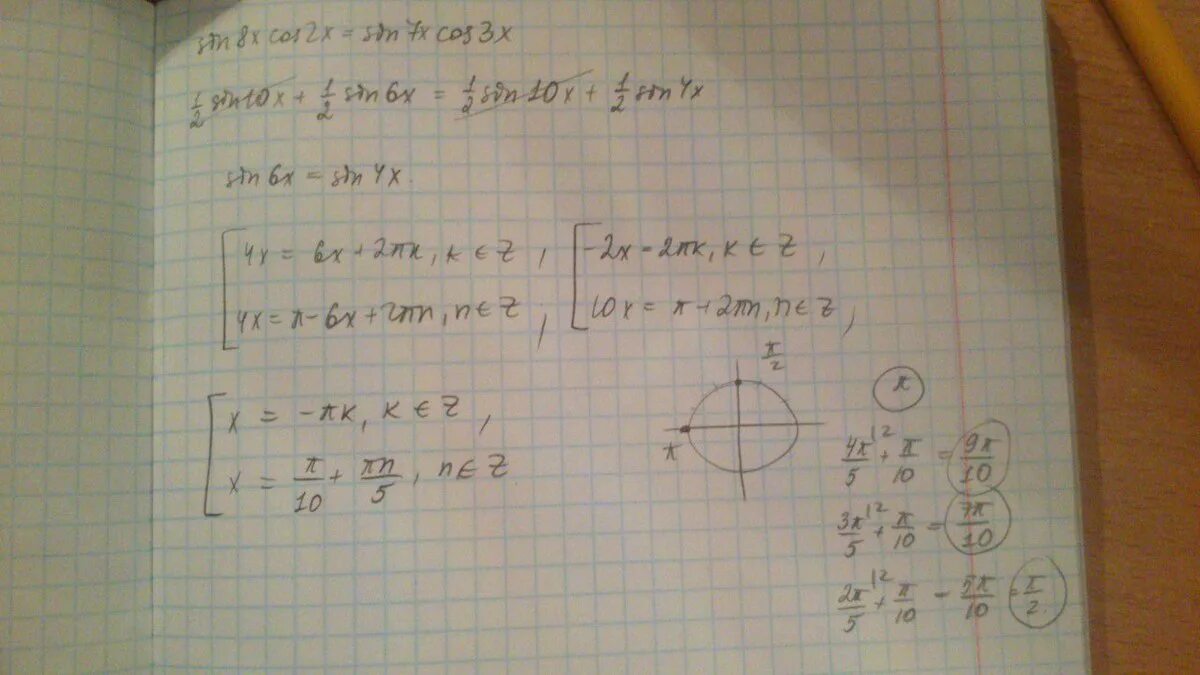 sin 8x cos 2x = sin 7x cos 3x
1/2 sin 10x + 1/2 sin 6x = 1/2 sin 10x + 1/2 sin 4x
sin 6x = sin 4x.
[ 4x = 6x + 2πk, k ∈ Z, [ -2x = 2πk, k ∈ Z,
4x = π - 6x + 2πn, n ∈ Z, 10x = π + 2πn, n ∈ Z,
[ x = -πk, k ∈ Z,
x = π/10 + πn/5, n ∈ Z
π/2
π
π
4π/5 |2 + π/10 = 9π/10
3π/5 |2 + π/10 = 7π/10
2π/5 |2 + π/10 = 5π/10 = π/2